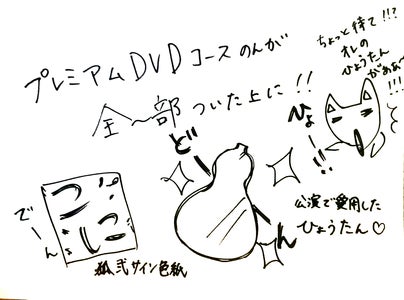 プレミアムDVDコースのんが
全〜部ついた上に!!
ちょっと待て!!?
オレの
ひょうたん
がああ〜
!!!
ひょー!!
ど
ん
でーん
公演で愛用した
ひょうたん♡
狐弐サイン色紙